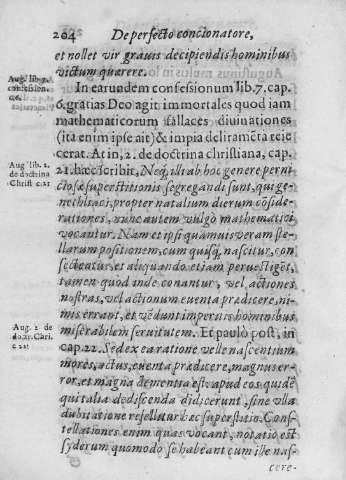 204 De perfecto concionatore,
et nollet vir grauis decipiendis hominibus
victum quærere.
Aug. lib. 7.
confession.
c.6.
In earundem confessionum lib. 7. cap.
6. gratias Deo agit immortales quod iam
mathematicorum fallaces diuinationes
(ita enim ipse ait) & impia deliramẽta reie
cerat. At in, 2. de doctrina christiana, cap.
Aug lib. 2.
de doctrina
Christ c.21
21. hæc scribit, Neq; illi ab hoc genere perni
ciosæ superstitionis segregandi sunt, qui ge-
nethliaci, propter natalium dierum cõside-
rationes, nunc autem vulgò mathematici
vocantur. Nam et ipsi quamuis veram ste-
llarum positionem, cum quisq; nascitur, con
sectentur, et aliquando etiam peruestigẽt,
tamen quod inde conantur, vel, actiones
nostras, vel actionum euenta prædicere, ni-
mis errant, et vẽdunt imperitis hominibus
Aug. 2 de
Chri.
c 21.
miserabilem seruitutem. Et paulò post, in
cap. 22. Sed ex ea ratione velle nascentium
mores, actus, euenta prædicere, magnus er-
ror, et magna dementia est, apud eos quidẽ
qui talia dediscenda didicerunt, sine vlla
dubitatione refellitur hæc superstitio. Cons-
tellationes enim quas vocant, notatio est
syderum quomodo se habeant cum ille nas-
cere-